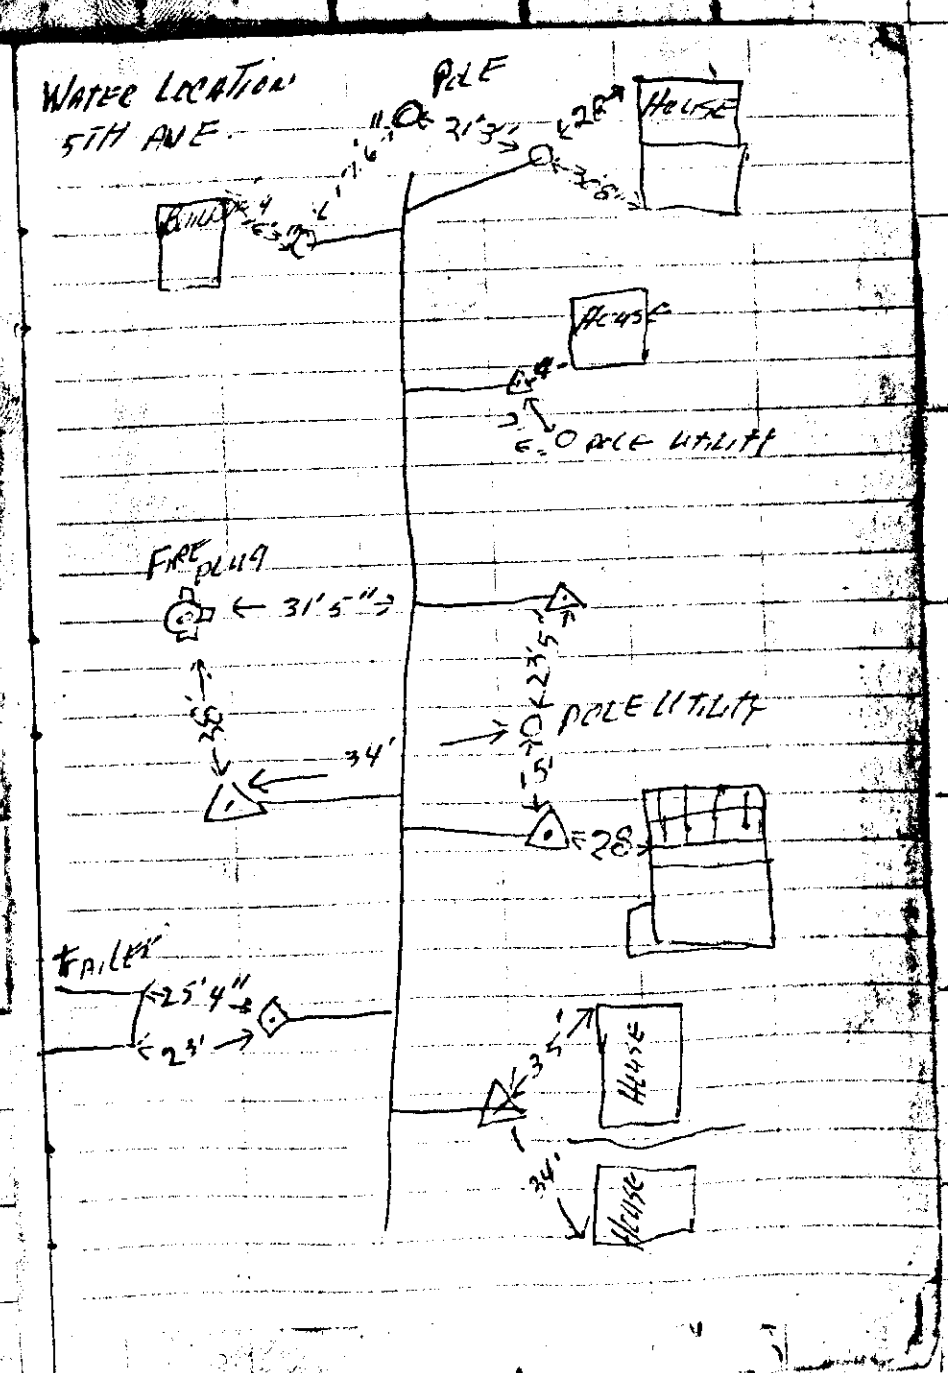 WATER LOCATION
5TH AVE.
POLE
21'3"
28
HOUSE
HOUSE
POLE UTILITY
FIRE PLUG
31'5"
23'5"
POLE UTILITY
34'
15'
28
TRAILER
25'4"
23'
35'
HOUSE
34'
HOUSE